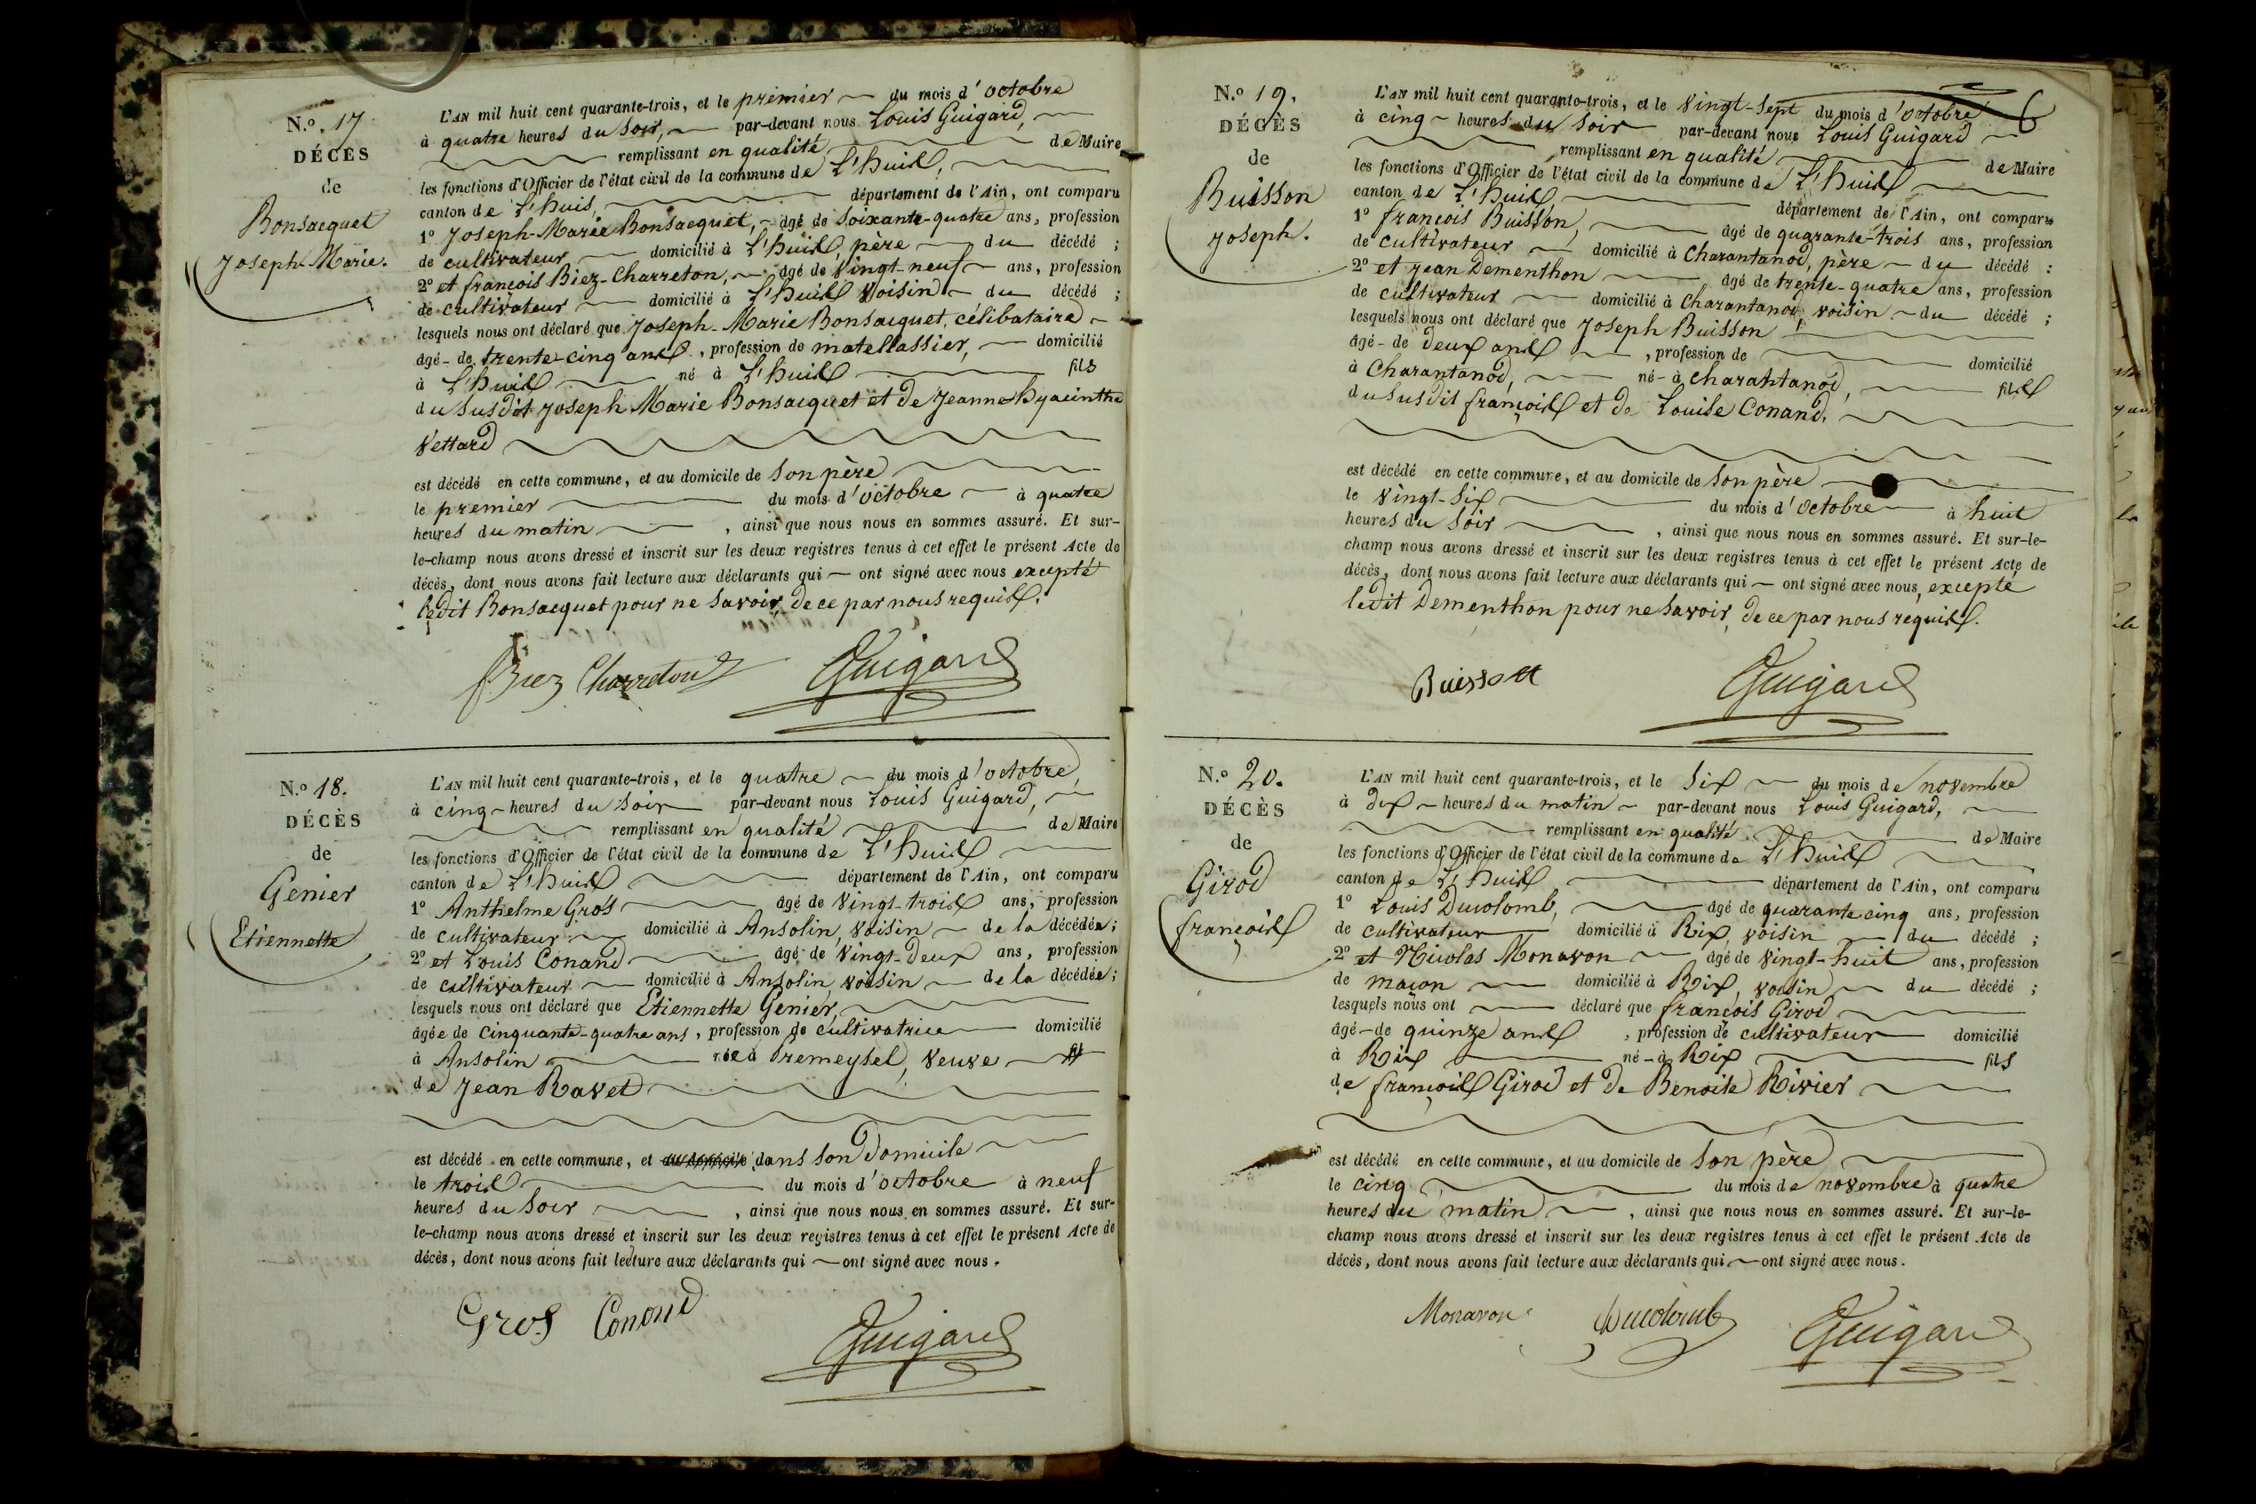 N.º 17
DÉCÈS
de
Bonsacquet
Joseph-Marie.
L'AN mil huit cent quarante-trois, et le premier du mois d'octobre
à quatre heures du soir, par-devant nous Louis Guigard,
remplissant en qualité de Maire
les fonctions d'Officier de l'état civil de la commune de L'huis,
canton de L'huis, département de l'Ain, ont comparu
1º Joseph-Marie Bonsacquet, âgé de soixante-quatre ans, profession
de cultivateur domicilié à L'huis, père du décédé ;
2º et françois Biez-Charreton, âgé de vingt-neuf ans, profession
de cultivateur domicilié à L'huis voisin du décédé ;
lesquels nous ont déclaré que Joseph-Marie Bonsacquet, célibataire
âgé de trente-cinq ans, profession de matellassier, domicilié
à L'huis né à L'huis fils
du susdit Joseph Marie Bonsacquet et de Jeanne hyacinthe
Vettard
est décédé en cette commune, et au domicile de son père
le premier du mois d'octobre à quatre
heures du matin, ainsi que nous nous en sommes assuré. Et sur-
le-champ nous avons dressé et inscrit sur les deux registres tenus à cet effet le présent Acte de
décès, dont nous avons fait lecture aux déclarants qui ont signé avec nous excepté
ledit Bonsacquet pour ne savoir, de ce par nous requis.
Biez Charreton Guigard
N.º 18.
DÉCÈS
de
Genier
Etiennette
L'AN mil huit cent quarante-trois, et le quatre du mois d'octobre,
à cinq heures du soir par-devant nous Louis Guigard,
remplissant en qualité de Maire
les fonctions d'Officier de l'état civil de la commune de L'huis
canton de L'huis département de l'Ain, ont comparu
1º Anthelme Gros âgé de vingt-trois ans, profession
de cultivateur domicilié à Ansolin, voisin de la décédée ;
2º et Louis Conand âgé de vingt-deux ans, profession
de cultivateur domicilié à Ansolin, voisin de la décédée ;
lesquels nous ont déclaré que Etiennette Genier,
âgée de cinquante-quatre ans, profession de cultivatrice domicilié
à Ansolin née à Premeysel, veuve
de Jean Ravet
est décédé en cette commune, et au domicile dans son domicile
le trois du mois d'octobre à neuf
heures du soir, ainsi que nous nous en sommes assuré. Et sur-
le-champ nous avons dressé et inscrit sur les deux registres tenus à cet effet le présent Acte de
décès, dont nous avons fait lecture aux déclarants qui ont signé avec nous.
Gros Conand
Guigard
6
N.º 19.
DÉCÈS
de
Buisson
Joseph.
L'AN mil huit cent quarante-trois, et le vingt-sept du mois d'octobre
à cinq heures du soir par-devant nous Louis Guigard
remplissant en qualité de Maire
les fonctions d'Officier de l'état civil de la commune de L'huis
canton de L'huis, département de l'Ain, ont comparu
1º françois Buisson, âgé de quarante-trois ans, profession
de cultivateur domicilié à Charantanod, père du décédé :
2º et Jean Dementhon âgé de trente-quatre ans, profession
de cultivateur domicilié à Charantanod, voisin du décédé ;
lesquels nous ont déclaré que Joseph Buisson
âgé de deux ans, profession de domicilié
à Charantanod, né à Charantanod, fils
du susdit françois et de Louise Conand.
est décédé en cette commune, et au domicile de son père
le vingt-six du mois d'octobre à huit
heures du soir, ainsi que nous nous en sommes assuré. Et sur-le-
champ nous avons dressé et inscrit sur les deux registres tenus à cet effet le présent Acte de
décès, dont nous avons fait lecture aux déclarants qui ont signé avec nous, excepté
ledit Dementhon pour ne savoir, de ce par nous requis.
Buisson Guigard
N.º 20.
DÉCÈS
de
Girod
françois
L'AN mil huit cent quarante-trois, et le six du mois de novembre
à dix heures du matin par-devant nous Louis Guigard,
remplissant en qualité de Maire
les fonctions d'Officier de l'état civil de la commune de L'huis
canton de L'huis département de l'Ain, ont comparu
1º Louis Ducolomb, âgé de quarante cinq ans, profession
de cultivateur domicilié à Rix, voisin du décédé ;
2º et Nicolas Monavon âgé de vingt-huit ans, profession
de maçon domicilié à Rix, voisin du décédé ;
lesquels nous ont déclaré que françois Girod
âgé de quinze ans, profession de cultivateur domicilié
à Rix né à Rix fils
de françois Girod et de Benoite Rivier
est décédé en cette commune, et au domicile de son père
le cinq du mois de novembre à quatre
heures du matin, ainsi que nous nous en sommes assuré. Et sur-le-
champ nous avons dressé et inscrit sur les deux registres tenus à cet effet le présent Acte de
décès, dont nous avons fait lecture aux déclarants qui ont signé avec nous.
Monavon Ducolomb Guigard